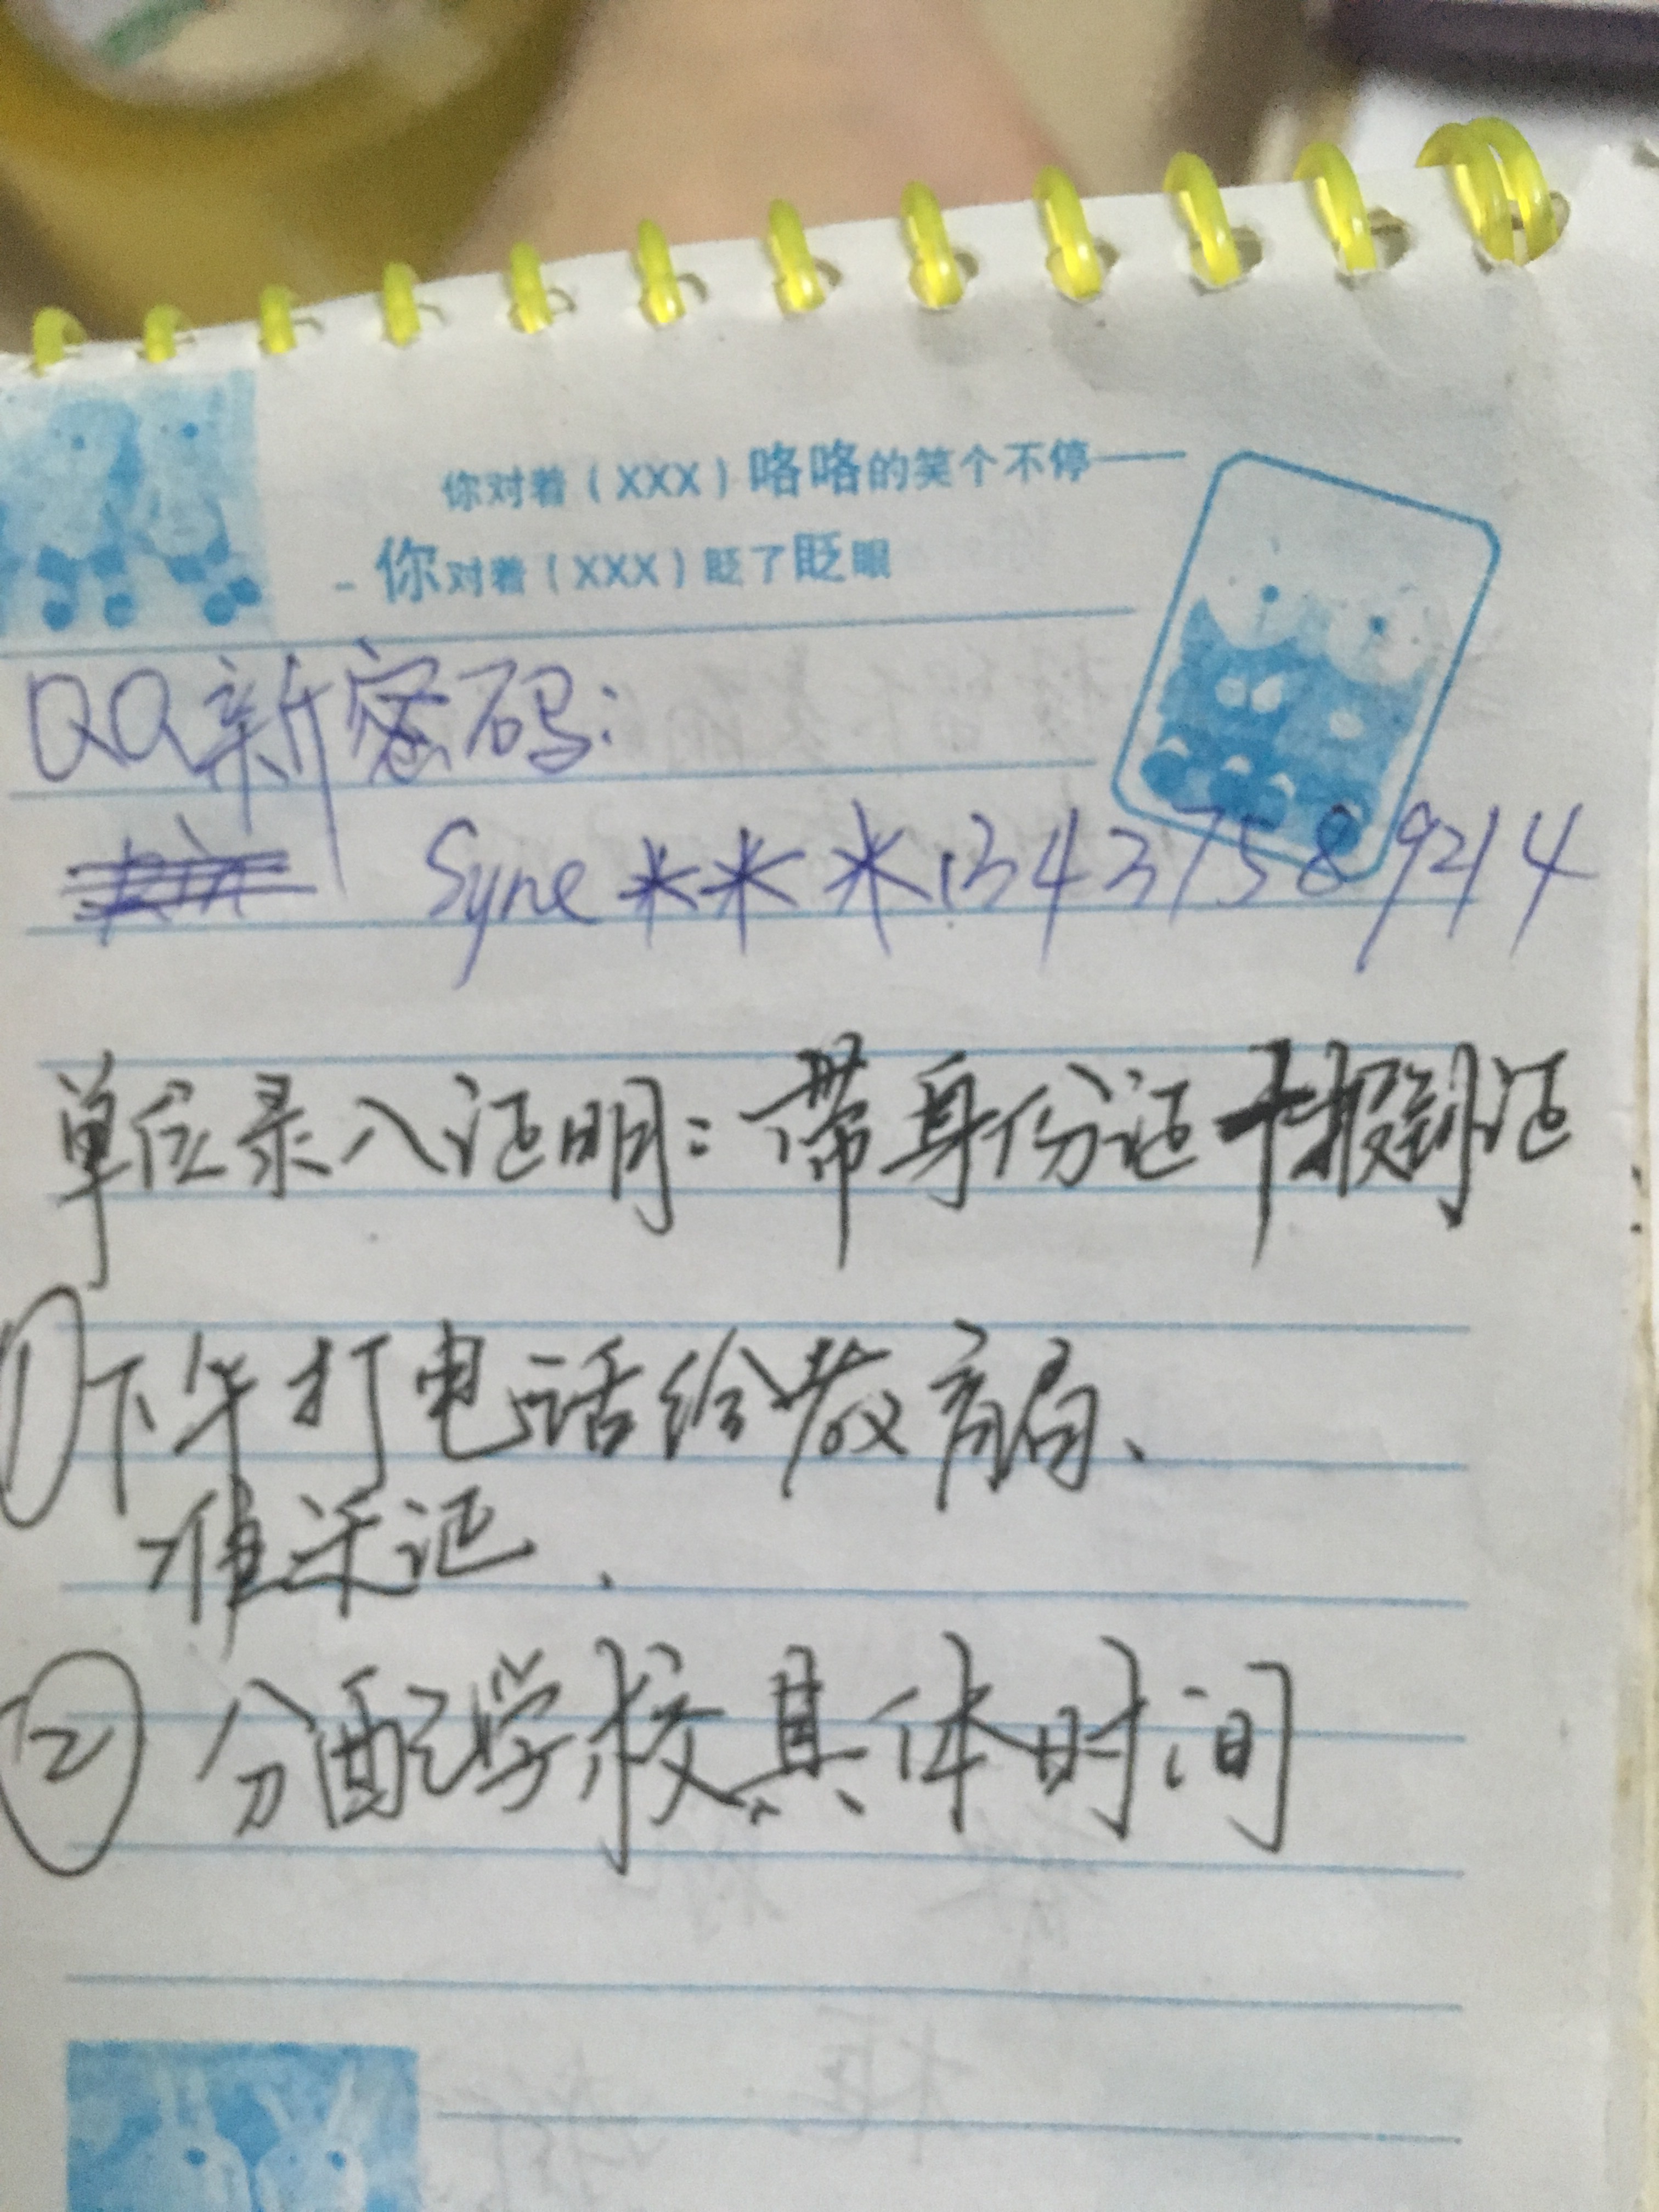 你对着（XXX）咯咯的笑个不停——
- 你对着（XXX）眨了眨眼
QQ新密码：
Syne ***13437589214
单位录入证明：带身份证+报到证
①下午打电话给教育局、
准迁证.
②分配学校具体时间